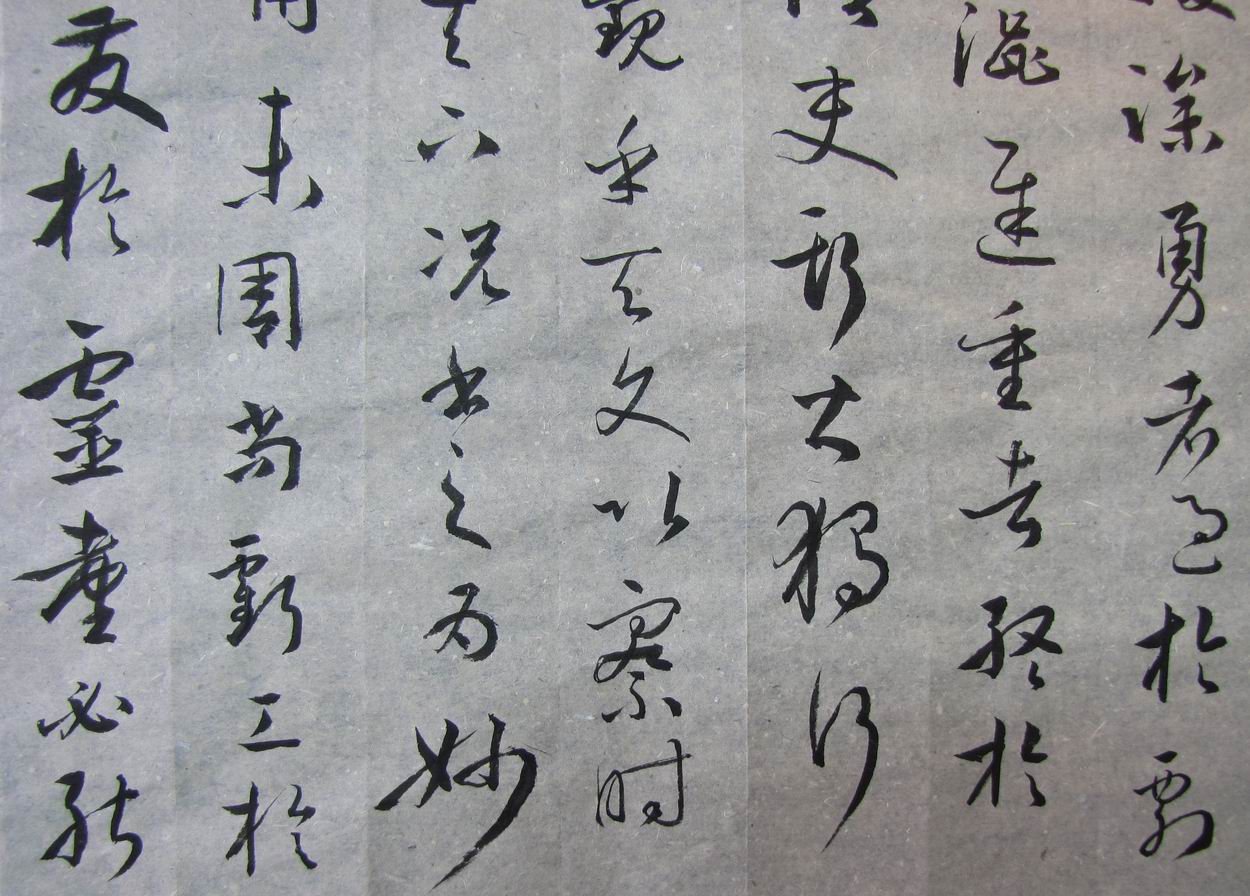 躁勇者過於剽
澀遲重者終於
吏斯皆獨行
觀乎天文以察時
天下況書之為妙
用未周尚虧工於
發於靈臺必能